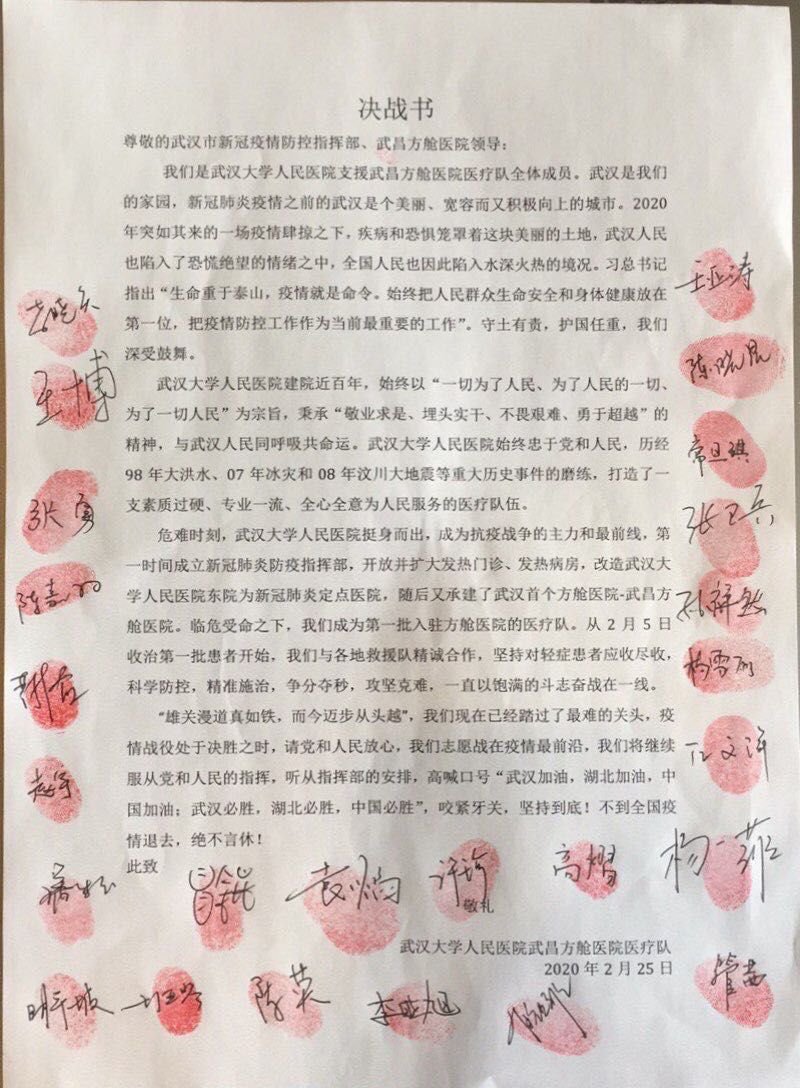 决战书
尊敬的武汉市新冠疫情防控指挥部、武昌方舱医院领导：
我们是武汉大学人民医院支援武昌方舱医院医疗队全体成员。武汉是我们
的家园，新冠肺炎疫情之前的武汉是个美丽、宽容而又积极向上的城市。2020
年突如其来的一场疫情肆掠之下，疾病和恐惧笼罩着这块美丽的土地，武汉人民
也陷入了恐慌绝望的情绪之中，全国人民也因此陷入水深火热的境况。习总书记
指出“生命重于泰山，疫情就是命令。始终把人民群众生命安全和身体健康放在
第一位，把疫情防控工作作为当前最重要的工作”。守土有责，护国任重，我们
深受鼓舞。
武汉大学人民医院建院近百年，始终以“一切为了人民、为了人民的一切、
为了一切人民”为宗旨，秉承“敬业求是、埋头实干、不畏艰难、勇于超越”的
精神，与武汉人民同呼吸共命运。武汉大学人民医院始终忠于党和人民，历经
98 年大洪水、07 年冰灾和 08 年汶川大地震等重大历史事件的磨练，打造了一
支素质过硬、专业一流、全心全意为人民服务的医疗队伍。
危难时刻，武汉大学人民医院挺身而出，成为抗疫战争的主力和最前线，第
一时间成立新冠肺炎防疫指挥部，开放并扩大发热门诊、发热病房，改造武汉大
学人民医院东院为新冠肺炎定点医院，随后又承建了武汉首个方舱医院-武昌方
舱医院。临危受命之下，我们成为第一批入驻方舱医院的医疗队。从 2 月 5 日
收治第一批患者开始，我们与各地救援队精诚合作，坚持对轻症患者应收尽收，
科学防控，精准施治，争分夺秒，攻坚克难，一直以饱满的斗志奋战在一线。
“雄关漫道真如铁，而今迈步从头越”，我们现在已经踏过了最难的关头，疫
情战役处于决胜之时，请党和人民放心，我们志愿战在疫情最前沿，我们将继续
服从党和人民的指挥，听从指挥部的安排，高喊口号“武汉加油，湖北加油，中
国加油；武汉必胜，湖北必胜，中国必胜”，咬紧牙关，坚持到底！不到全国疫
情退去，绝不言休！
此致
敬礼
武汉大学人民医院武昌方舱医院医疗队
2020 年 2 月 25 日
王博
张勇
王亚涛
陈晓晨
常旦琪
张卫兵
孙祥然
杨雪丽
匡文洋
杨一菲
袁灿
许珍
高熠
陈英
李晓旭
管苗